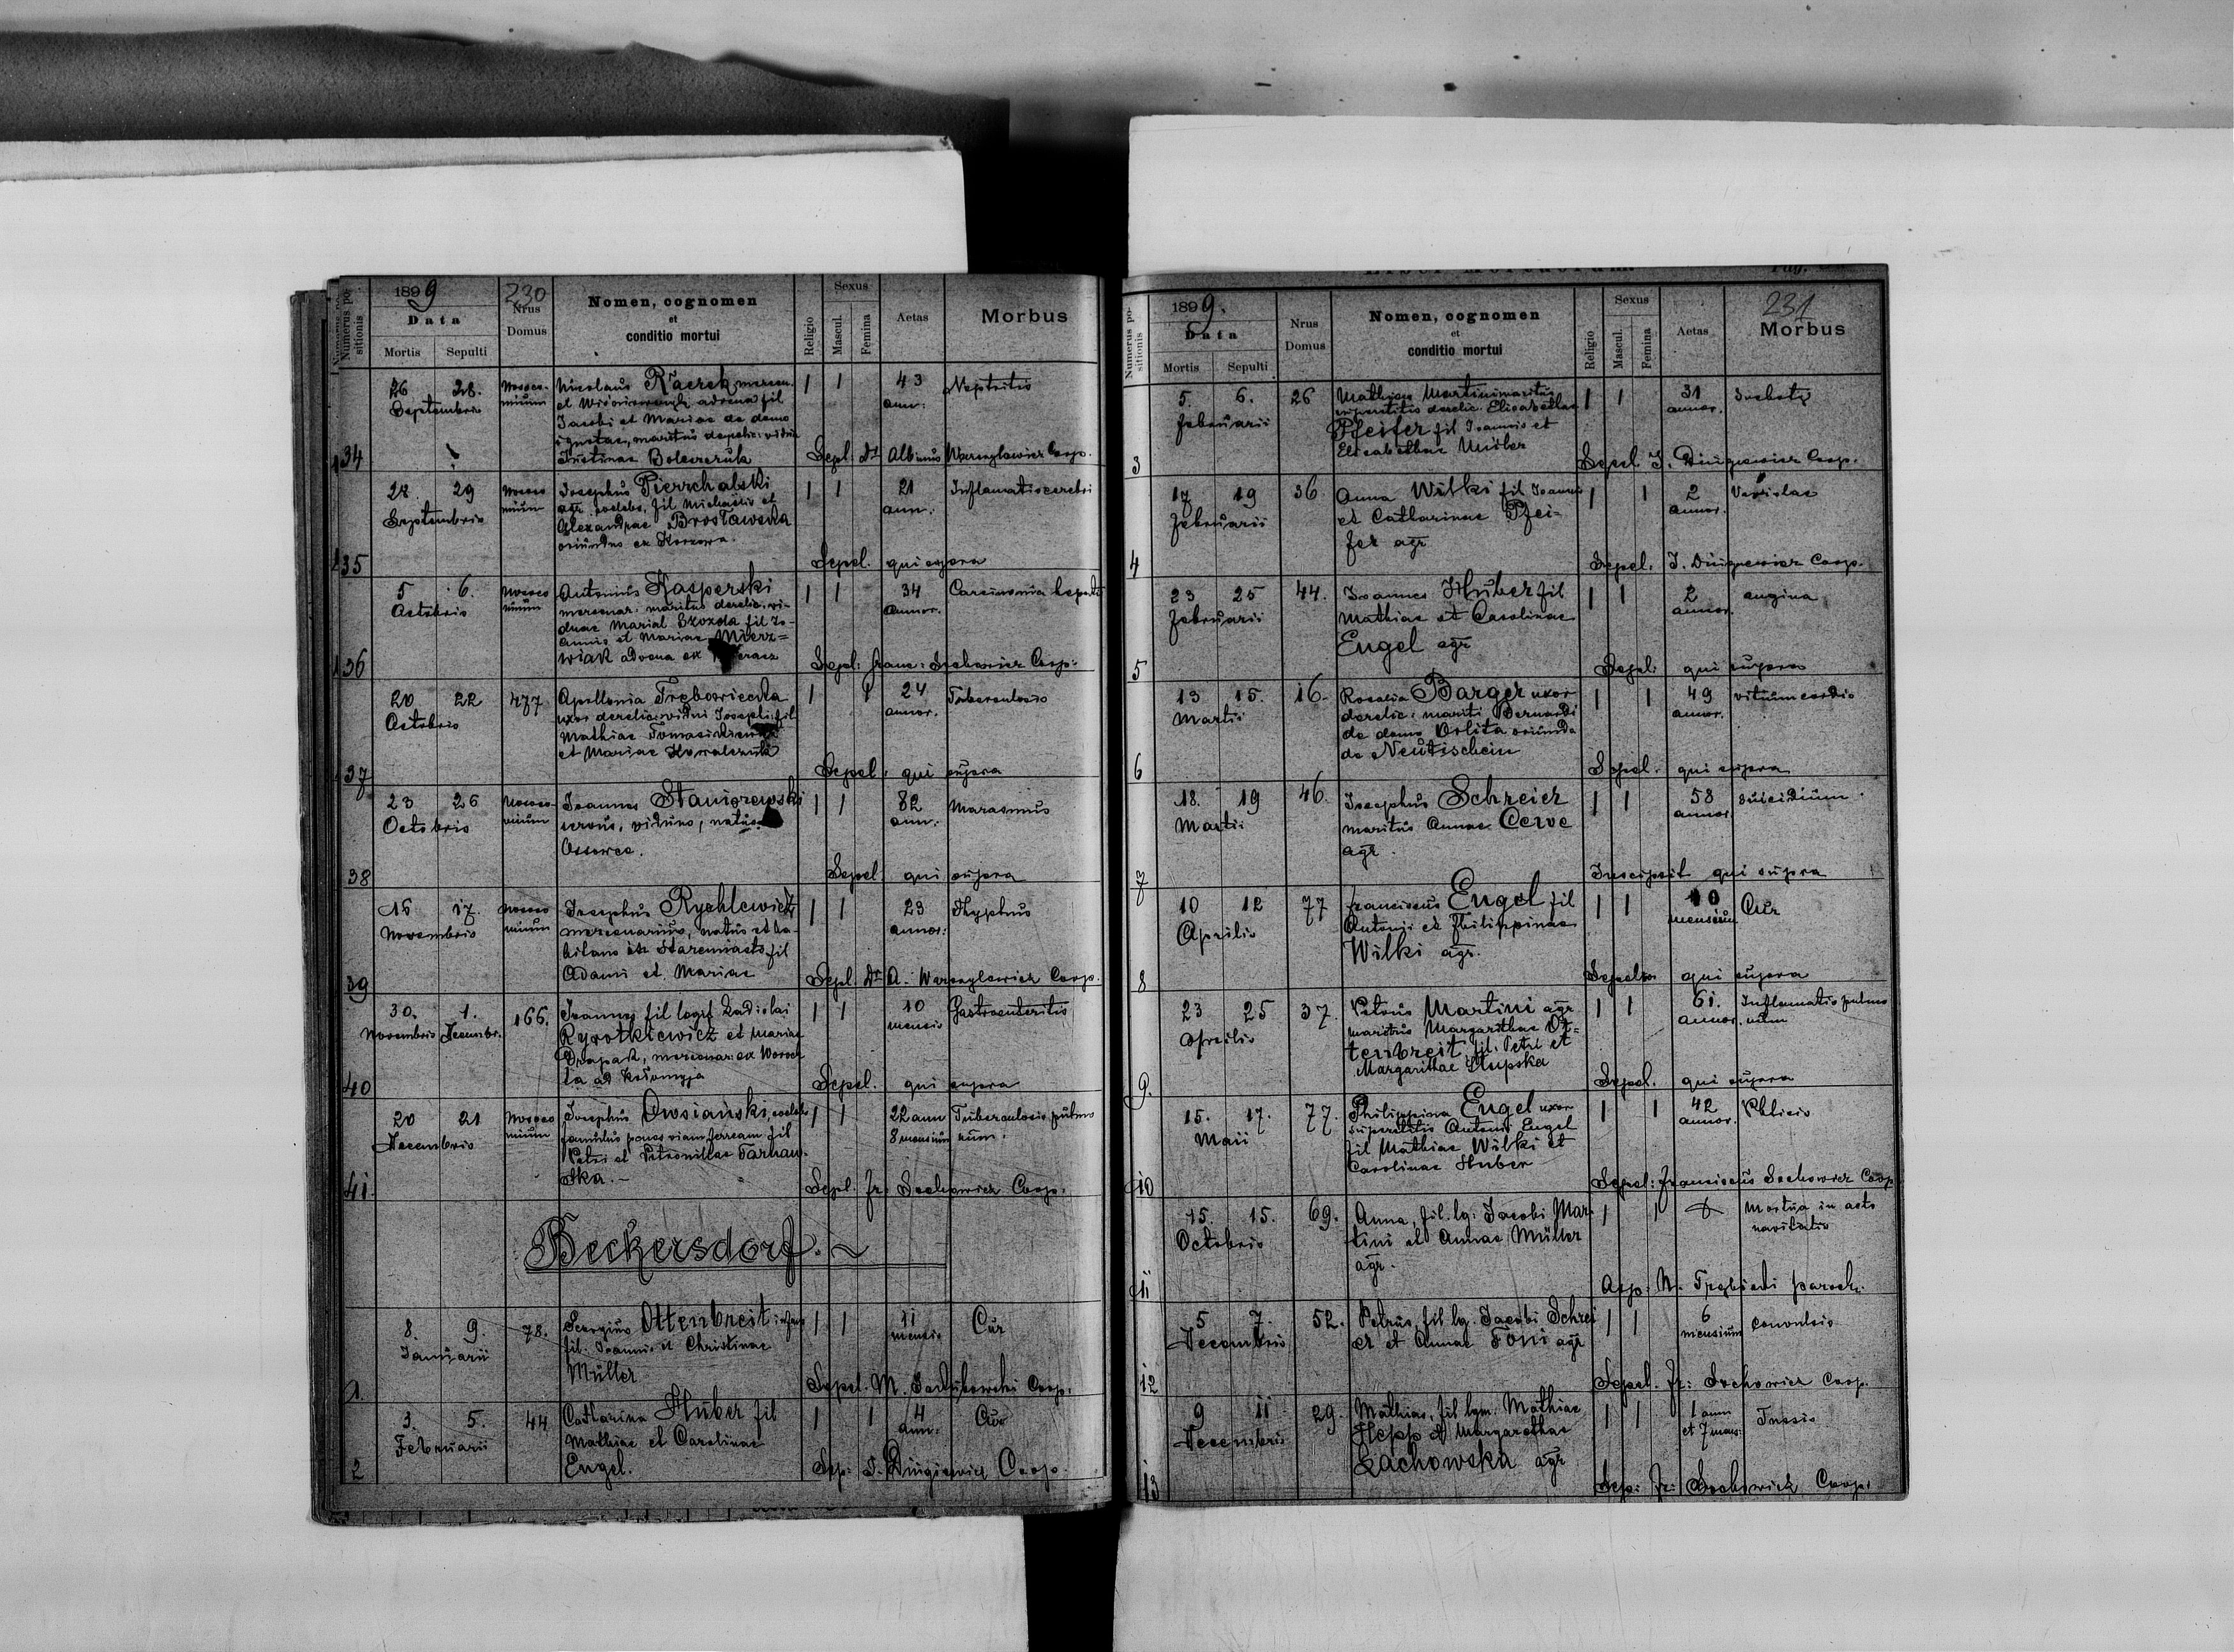 Numerus po-
sitionis
1899
230
Data
Mortis Sepulti
Nrus
Domus
Nomen, cognomen
et
conditio mortui
Religio
Sexus
Mascul.
Femina
Aetas
Morbus
34
26 28.
Septembris
Nosoco-
mium
Nicolaus Raczek, mercen.
et advena fil
Jacobi et Mariae de domo
ignotae, maritus derelic: vidua
Justinae
1 1
43
ann:
Nephritis
Sepel. Dr Albinus Coop.
35
28. 29
Septembris
Nosoco
mium
Josephus Pierzchalski
agr. coelebs, fil Michaelis et
Alexandrae Brosławska
oriundus ex
1 1
21
ann:
Inflamatio cerebri
Sepel. qui supra
36
5 6.
Octobris
Nosoco
mium
Antonius Kasperski
mercenar: maritus derelic. vi-
duae Mariae fil Jo-
annis et Mariae Mierz=
wiak advena ex
1 1
34
annor.
Carcinomia hepatis
Sepel: franc: Sochowicz Coop:
37
20 22
Octobris
477
Apollonia Trębowiecka
uxor derelic: vidui Josephi, fil
Mathiae
et Mariae Kowalczuk
1 1
24
annor.
Tuberculosis
Sepel: qui supra
38
23 26
Octobris
Nosoco-
mium
Joannes Staniszewski
servus, viduus, natus
Ossowce.
1 1
82
ann:
Marasmus
Sepel: qui supra
39
16 17.
Novembris
Nosoco
mium
Josephus Rychlewicz
mercenarius, natus et ha-
bitans in Staremiasto, fil
Adami et Mariae
1 1
23
annor:
Thyphus
Sepel. Dr A. Coop.
40
30. 1.
Novembris Decembr.
166.
Joannes fil legit Ladislai
Rywotkiewicz et Mariae
Drapak, mercenar: ex
ta ad Kołomyja
1 1
10
mensis
Gastroenteritis
Sepel. qui supra
41
20 21
Decembris
Nosoco
mium
Josephus Owsiański, coelebs
famulus penes viam ferream fil
Petri et Petronillae Tarnaw-
ska.-
1 1
22 ann
8 mensium
Tuberculosis pulmo
num.
Sepel. Fr. Sochowicz Coop.
Beckersdorf.
1.
8. 9.
Januarii
78.
Georgius Ottenbreit: infans
fil. Joannis et Christinae
Müller
1 1
11
mensis
Cur
Sepel. M. Coop.
2
3. 5.
Februarii
44
Catharina Huber fil
Mathiae et Carolinae
Engel.
1 1
4
ann.
Cur
Sep: J. Coop.
Liber Mortuorum.
Pag.
Numerus po-
sitionis
1899.
231
Data
Mortis Sepulti
Nrus
Domus
Nomen, cognomen
et
conditio mortui
Religio
Sexus
Mascul.
Femina
Aetas
Morbus
3
5. 6.
Februarii
26
Mathias Martini maritus
superstitis derelic. Elisabethae
Pfeifer fil Joannis et
Elisabethae Müller
1 1
31
annor.
Suchoty
Sepel J. Coop.
4
17 19
Februarii
36
Anna Wilki fil Joannis
et Catharinae Pfei-
fer agr
1 1
2
annor.
Variolae
Sepel. J. Coop.
5
23 25
Februarii
44.
Joannes Huber fil
Mathiae et Carolinae
Engel agr
1 1
2
annor.
angina
Sepel: qui supra
6
13 15.
Martii
16.
Rosalia Barger uxor
derelic: mariti Bernardi
de domo Orlita oriunda
de Neutischein
1 1
49
annor.
vitium cordis
Sepel. qui supra
7
18. 19
Martii
46.
Josephus Schreier
maritus Annae Cerve
agr.
1 1
58
annor.
suicidium.
Inscripsit qui supra
8
10 12
Aprilis
77
franciscus Engel fil
Antonii et Philippinae
Wilki agr.
1 1
10
mensium
Cur
qui supra
9.
23 25
Aprilis
37.
Petrus Martini agr
maritus Margarithae Ot=
tenbreit, fil. Petri et
Margarithae Słupska
1 1
61.
annor.
Inflamatio pulmo
num
Sepel. qui supra
10
15. 17.
Maii
77.
Philippina Engel uxor
superstitis Antonii Engel
fil Mathiae Wilki et
Carolinae Huber
1 1
42
annor.
Phtisis
Sepel: Franciscus Sochowicz Coop
11
15. 15.
Octobris
69.
Anna, fil. lg. Jacobi Mar-
tini et Annae Müller
agr.
1 1
Mortua in acto
navitatis
Asp: N. paroch.
12
5 7.
Decembris
52.
Petrus, fil lg. Jacobi Schrei
er et Annae Foni agr
1 1
6
mensium
convulsio
Sepel. Fr: Sochowicz Coop.
13
9 11
Decembris
29.
Mathias, fil lgm. Mathiae
Hepp et Margarethae
Lachowska agr
1 1
1 ann
et 7 mens:
Tussis
Sep: Fr: Sochowicz Coop.